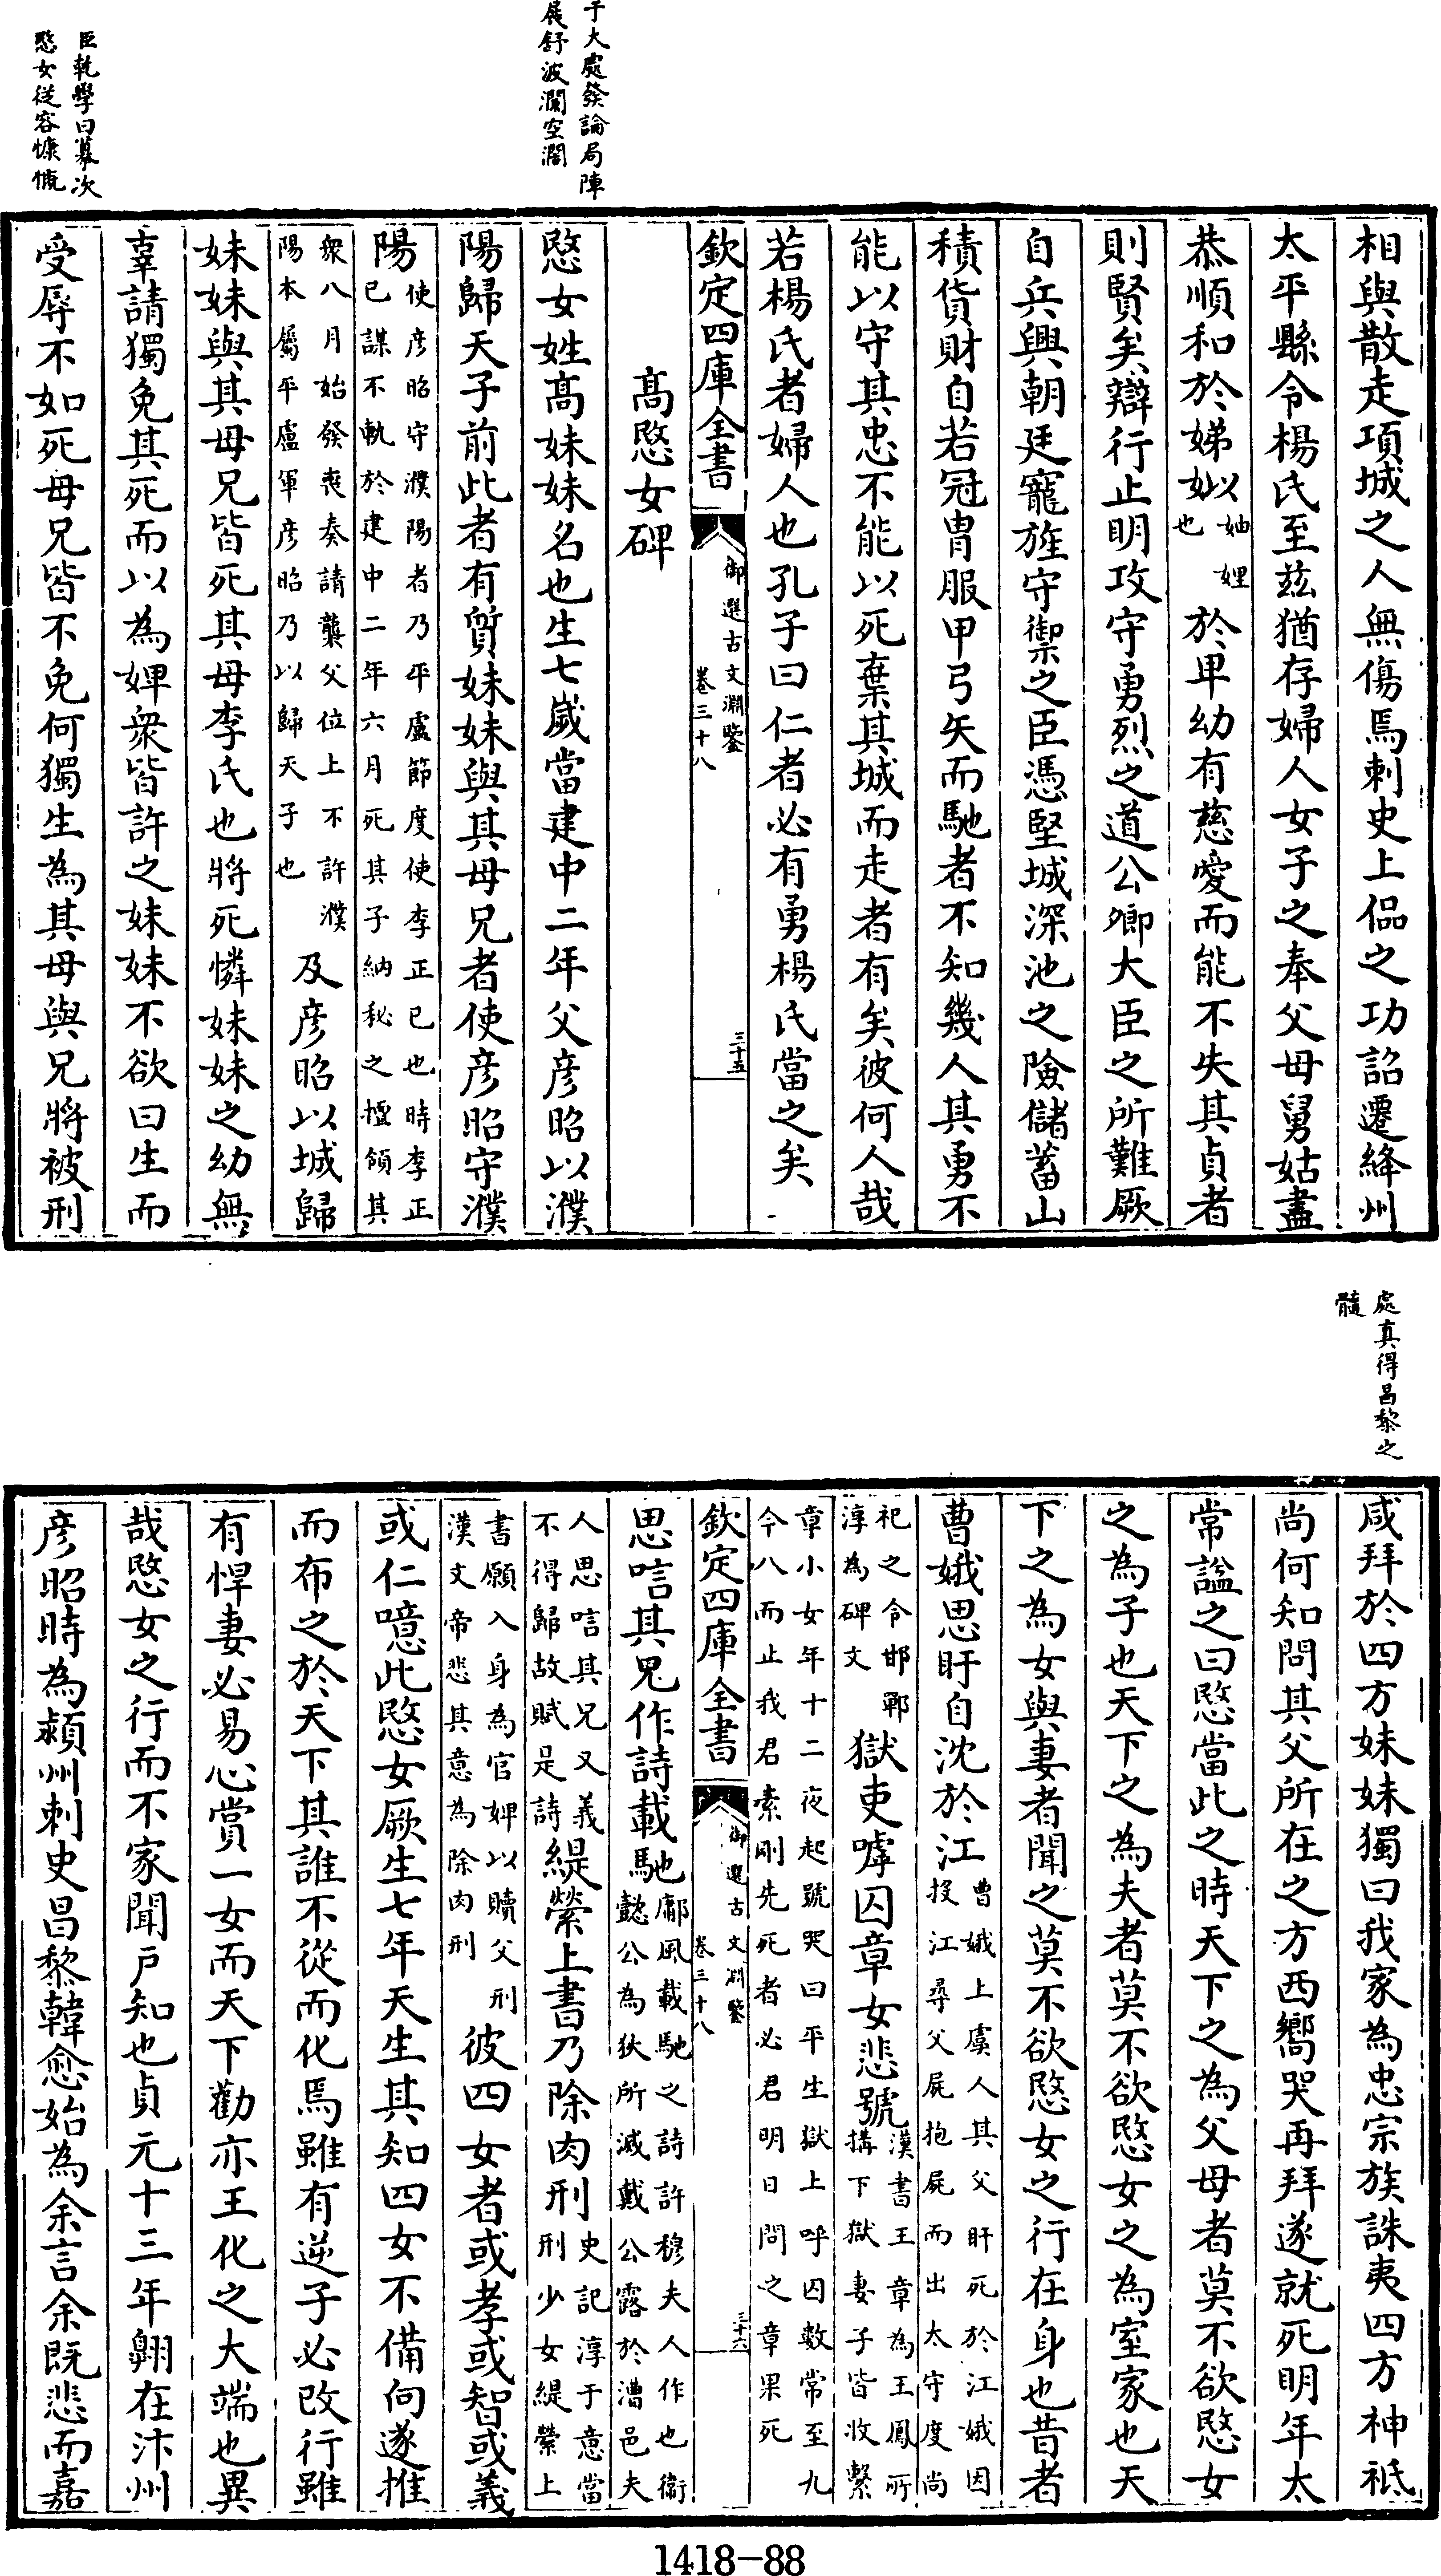 于大處發論局陣
展舒波瀾空濶
臣乾學曰摹次
愍女從容慷慨
相與散走項城之人無傷焉刺史上偘之功詔遷絳州
太平縣令楊氏至茲猶存婦人女子之奉父母舅姑盡
恭順和於娣姒以妯娌也於卑幼有慈愛而能不失其貞者
則賢矣辯行止明攻守勇烈之道公卿大臣之所難厥
自兵興朝廷寵旌守禦之臣憑堅城深池之險儲蓄山
積貨財自若冠冑服甲弓矢而馳者不知幾人其勇不
能以守其忠不能以死棄其城而走者有矣彼何人哉
若楊氏者婦人也孔子曰仁者必有勇楊氏當之矣
欽定四庫全書
御選古文淵鑒
卷三十八
三十五
高愍女碑
愍女姓高妹妹名也生七歲當建中二年父彥昭以濮
陽歸天子前此者有質妹妹與其母兄者使彥昭守濮
陽使彥昭守濮陽者乃平盧節度使李正已也時李正
已謀不軌於建中二年六月死其子納秘之擅領其
衆八月始發喪奏請襲父位上不許濮
陽本屬平盧軍彥昭乃以歸天子也
及彥昭以城歸
妹妹與其母兄皆死其母李氏也將死憐妹妹之幼無
辜請獨免其死而以為婢衆皆許之妹妹不欲曰生而
受辱不如死母兄皆不免何獨生為其母與兄將被刑
處真得昌黎之
髓
咸拜於四方妹妹獨曰我家為忠宗族誅夷四方神祇
尚何知問其父所在之方西嚮哭再拜遂就死明年太
常謚之曰愍當此之時天下之為父母者莫不欲愍女
之為子也天下之為夫者莫不欲愍女之為室家也天
下之為女與妻者聞之莫不欲愍女之行在身也昔者
曹娥思盱自沈於江曹娥上虞人其父盱死於江娥因
投江尋父屍抱屍而出太守度尚
祀之令邯鄲
淳為碑文
獄吏嘑囚章女悲號漢書王章為王鳳所
搆下獄妻子皆收繫
章小女年十二夜起號哭曰平生獄上呼囚數常至九
今八而止我君素剛先死者必君明日問之章果死
欽定四庫全書
御選古文淵鑒
卷三十八
三十六
思唁其兄作詩載馳鄘風載馳之詩許穆夫人作也衛
懿公為狄所滅戴公露於漕邑夫
人思唁其兄又義
不得歸故賦是詩
緹縈上書乃除肉刑史記淳于意當
刑少女緹縈上
書願入身為官婢以贖父刑
漢文帝悲其意為除肉刑
彼四女者或孝或智或義
或仁噫此愍女厥生七年天生其知四女不備向遂推
而布之於天下其誰不從而化焉雖有逆子必改行雖
有悍妻必易心賞一女而天下勸亦王化之大端也異
哉愍女之行而不家聞戶知也貞元十三年翱在汴州
彥昭時為潁州刺史昌黎韓愈始為余言余既悲而嘉
1418-88